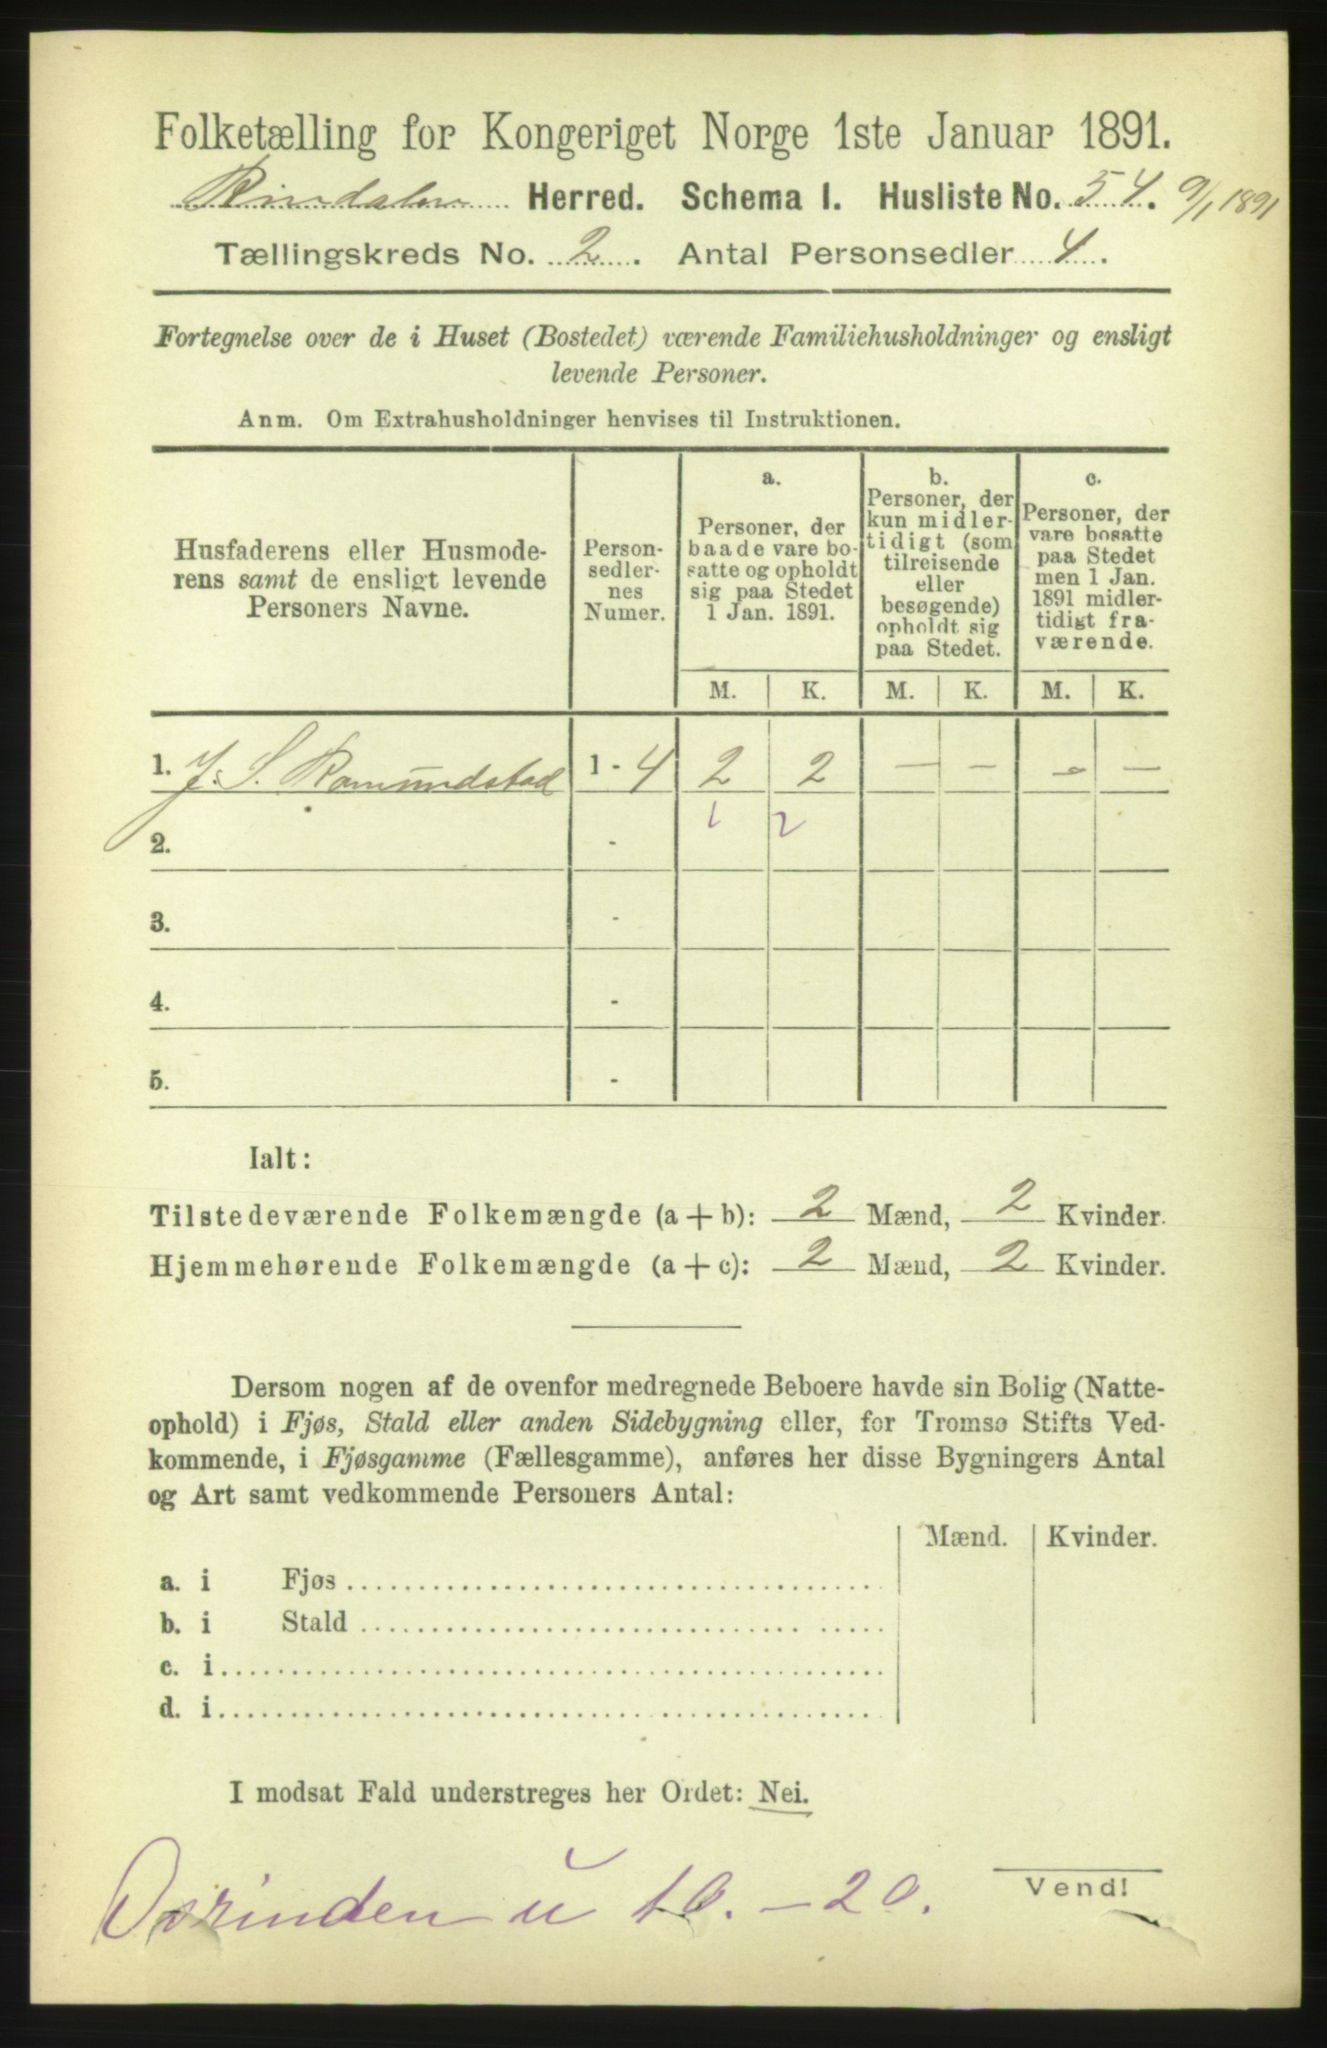 Folketælling for Kongeriget Norge 1ste Januar 1891.
Rindalen Herred. Schema I. Husliste No. 54. 9/1 1891
Tællingskreds No. 2. Antal Personsedler 4.
Fortegnelse over de i Huset (Bostedet) værende Familiehusholdninger og ensligt
levende Personer.
Anm. Om Extrahusholdninger henvises til Instruktionen.
Husfaderens eller Husmode-
rens samt de ensligt levende
Personers Navne.
Person-
sedler-
nes
Numer.
a.
Personer, der
baade vare bo-
satte og opholdt
sig paa Stedet
1 Jan. 1891.
b.
Personer, der
kun midler-
tidigt (som
tilreisende
eller
besøgende)
opholdt sig
paa Stedet.
c.
Personer, der
vare bosatte
paa Stedet
men 1 Jan.
1891 midler-
tidigt fra-
værende.
M. K. M. K. M. K.
1. J. S. Romundstad 1 - 4 2 2 — - - —
1 2
2. -
3. -
4. -
5. -
Ialt:
Tilstedeværende Folkemængde (a + b): 2 Mænd, 2 Kvinder.
Hjemmehørende Folkemængde (a + c): 2 Mænd, 2 Kvinder.
Dersom nogen af de ovenfor medregnede Beboere havde sin Bolig (Natte-
ophold) i Fjøs, Stald eller anden Sidebygning eller, for Tromsø Stifts Ved-
kommende, i Fjøsgamme (Fællesgamme), anføres her disse Bygningers Antal
og Art samt vedkommende Personers Antal:
Mænd. Kvinder.
a. i Fjøs
b. i Stald
c. i
d. i
I modsat Fald understreges her Ordet: Nei.
Vend!
u 10. - 20.